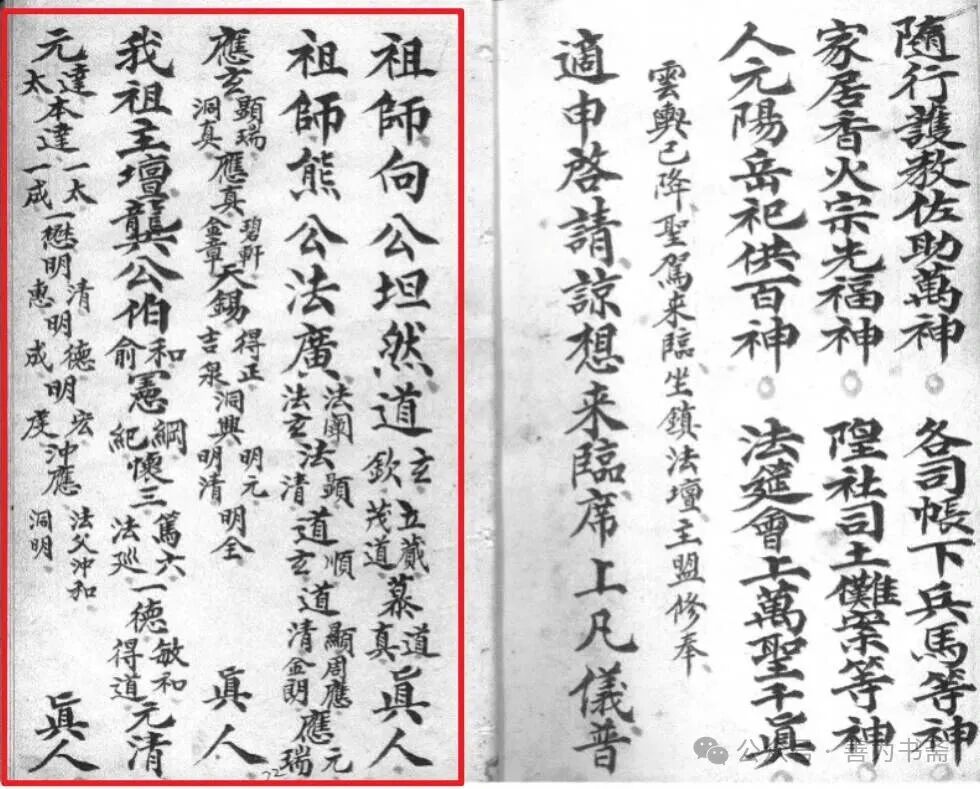 隨行護教佐助萬神 各司帳下兵馬等神
家居香火宗先福神 隍社司土儺案等神
人元陽岳祀供百神 法筵會上萬聖千眞
雲輿已降聖駕来臨坐鎮法壇主盟修奉
適申啓請諒想来臨席上凡儀普
祖師向公坦然道玄欽立茂葴道慕道真眞人
祖師熊公法廣法闡法玄法顯清道順玄道顯清周應金朗應元瑞
應玄顯瑞洞真應真碧軒金章天錫得正吉泉洞興明元明清明全眞人
我祖主壇龔公伯和俞憲綱紀懷三篤六法巡一德敏和得道元清
元達太本達一太一成一懋明清惠明德成明宏度沖應法父沖和洞明眞人
22
公众号 善乃书斋